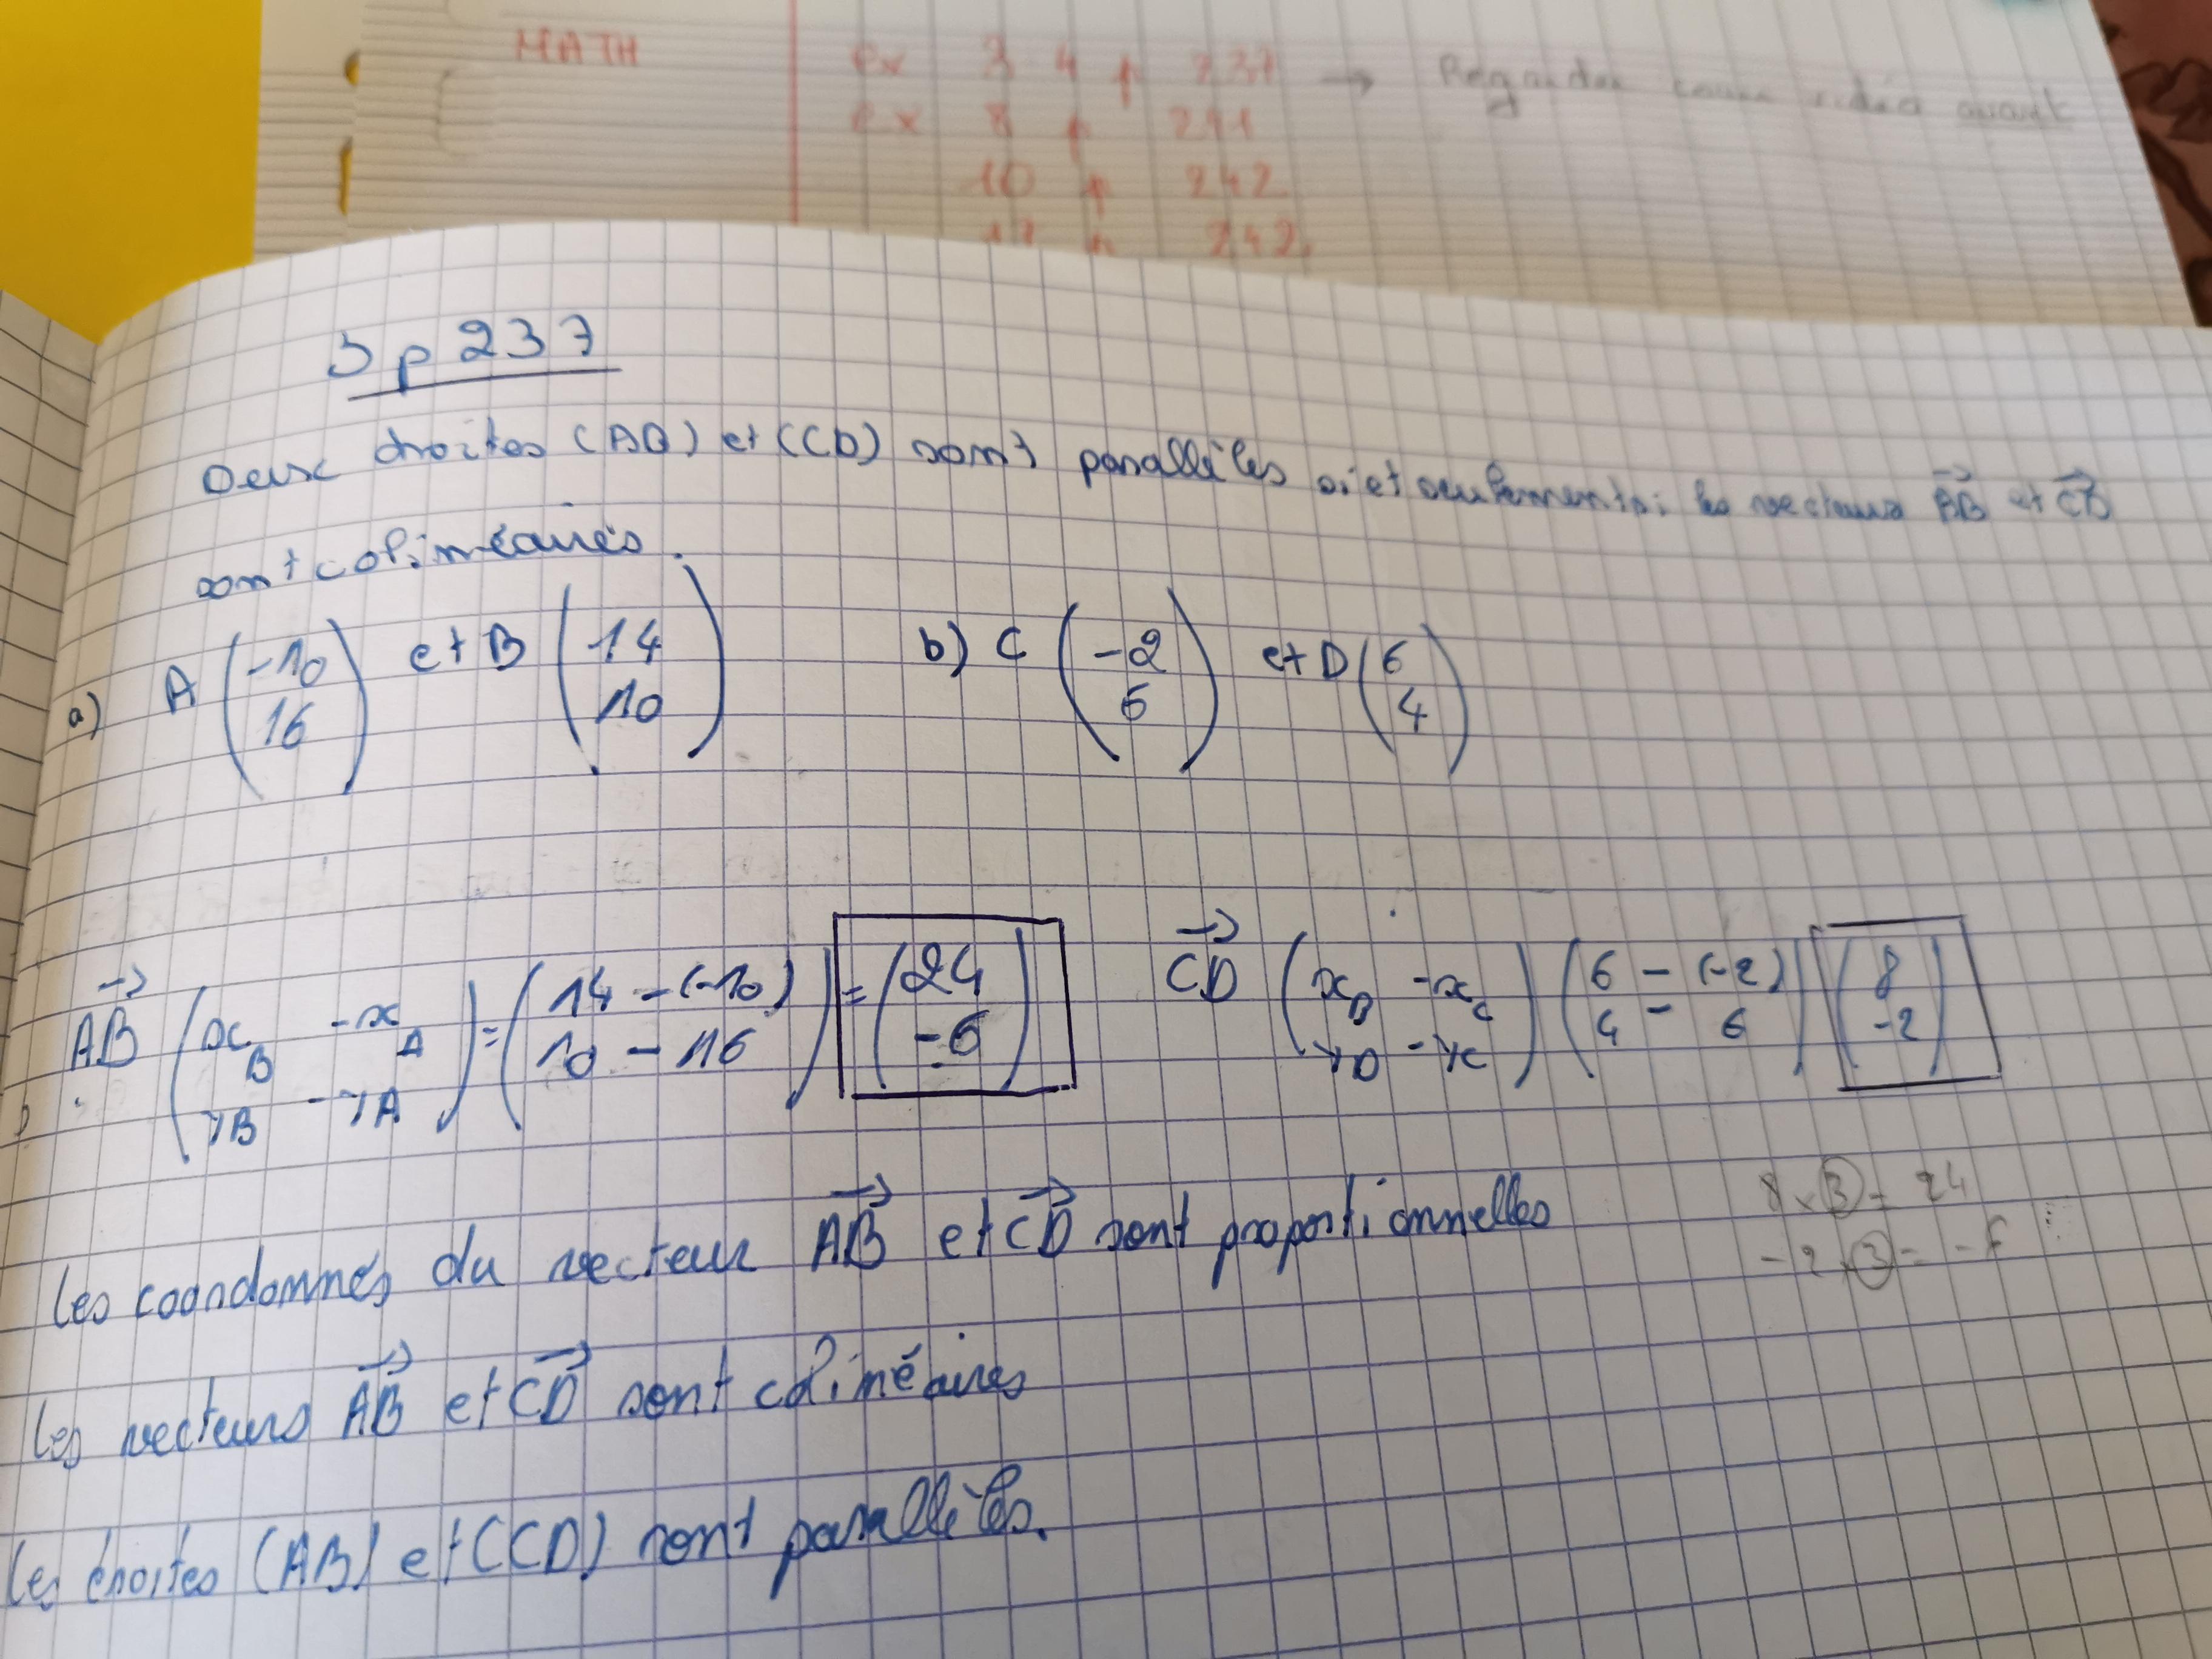 MATH ex 3 4 p 237 → Regarder cours vidéo avant
ex 8 p 241
10 p 242
17 p 242
3 p 237
Deux droites (AB) et (CD) sont parallèles si et seulement si les vecteurs AB et CD
sont colinéaires.
a) A (-10 16) et B (14 10) b) C (-2 6) et D (6 4)
AB (xB - xA yB - yA) = (14 - (-10) 10 - 16) = (24 -6) CD (xB - xC yD - yC) (6 - (-2) 4 - 6) (8 -2)
8 x 3 = 24
-2 x 3 = -6
les coordonnés du vecteur AB et CD sont proportionnelles
les vecteurs AB et CD sont colinéaires
les droites (AB) et (CD) sont parallèles.